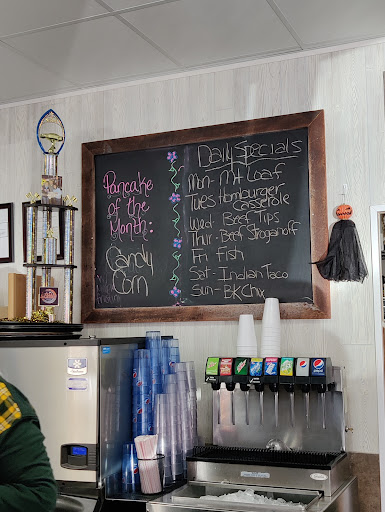 Pancake
of the
Month:
Candy
Corn
Daily Specials
Mon- Mt Loaf
Tues Hamburger
Casserole
Wed- Beef Tips
Thur- Beef Stroganoff
Fri Fish
Sat- Indian Taco
Sun- BK Chx
pepsi